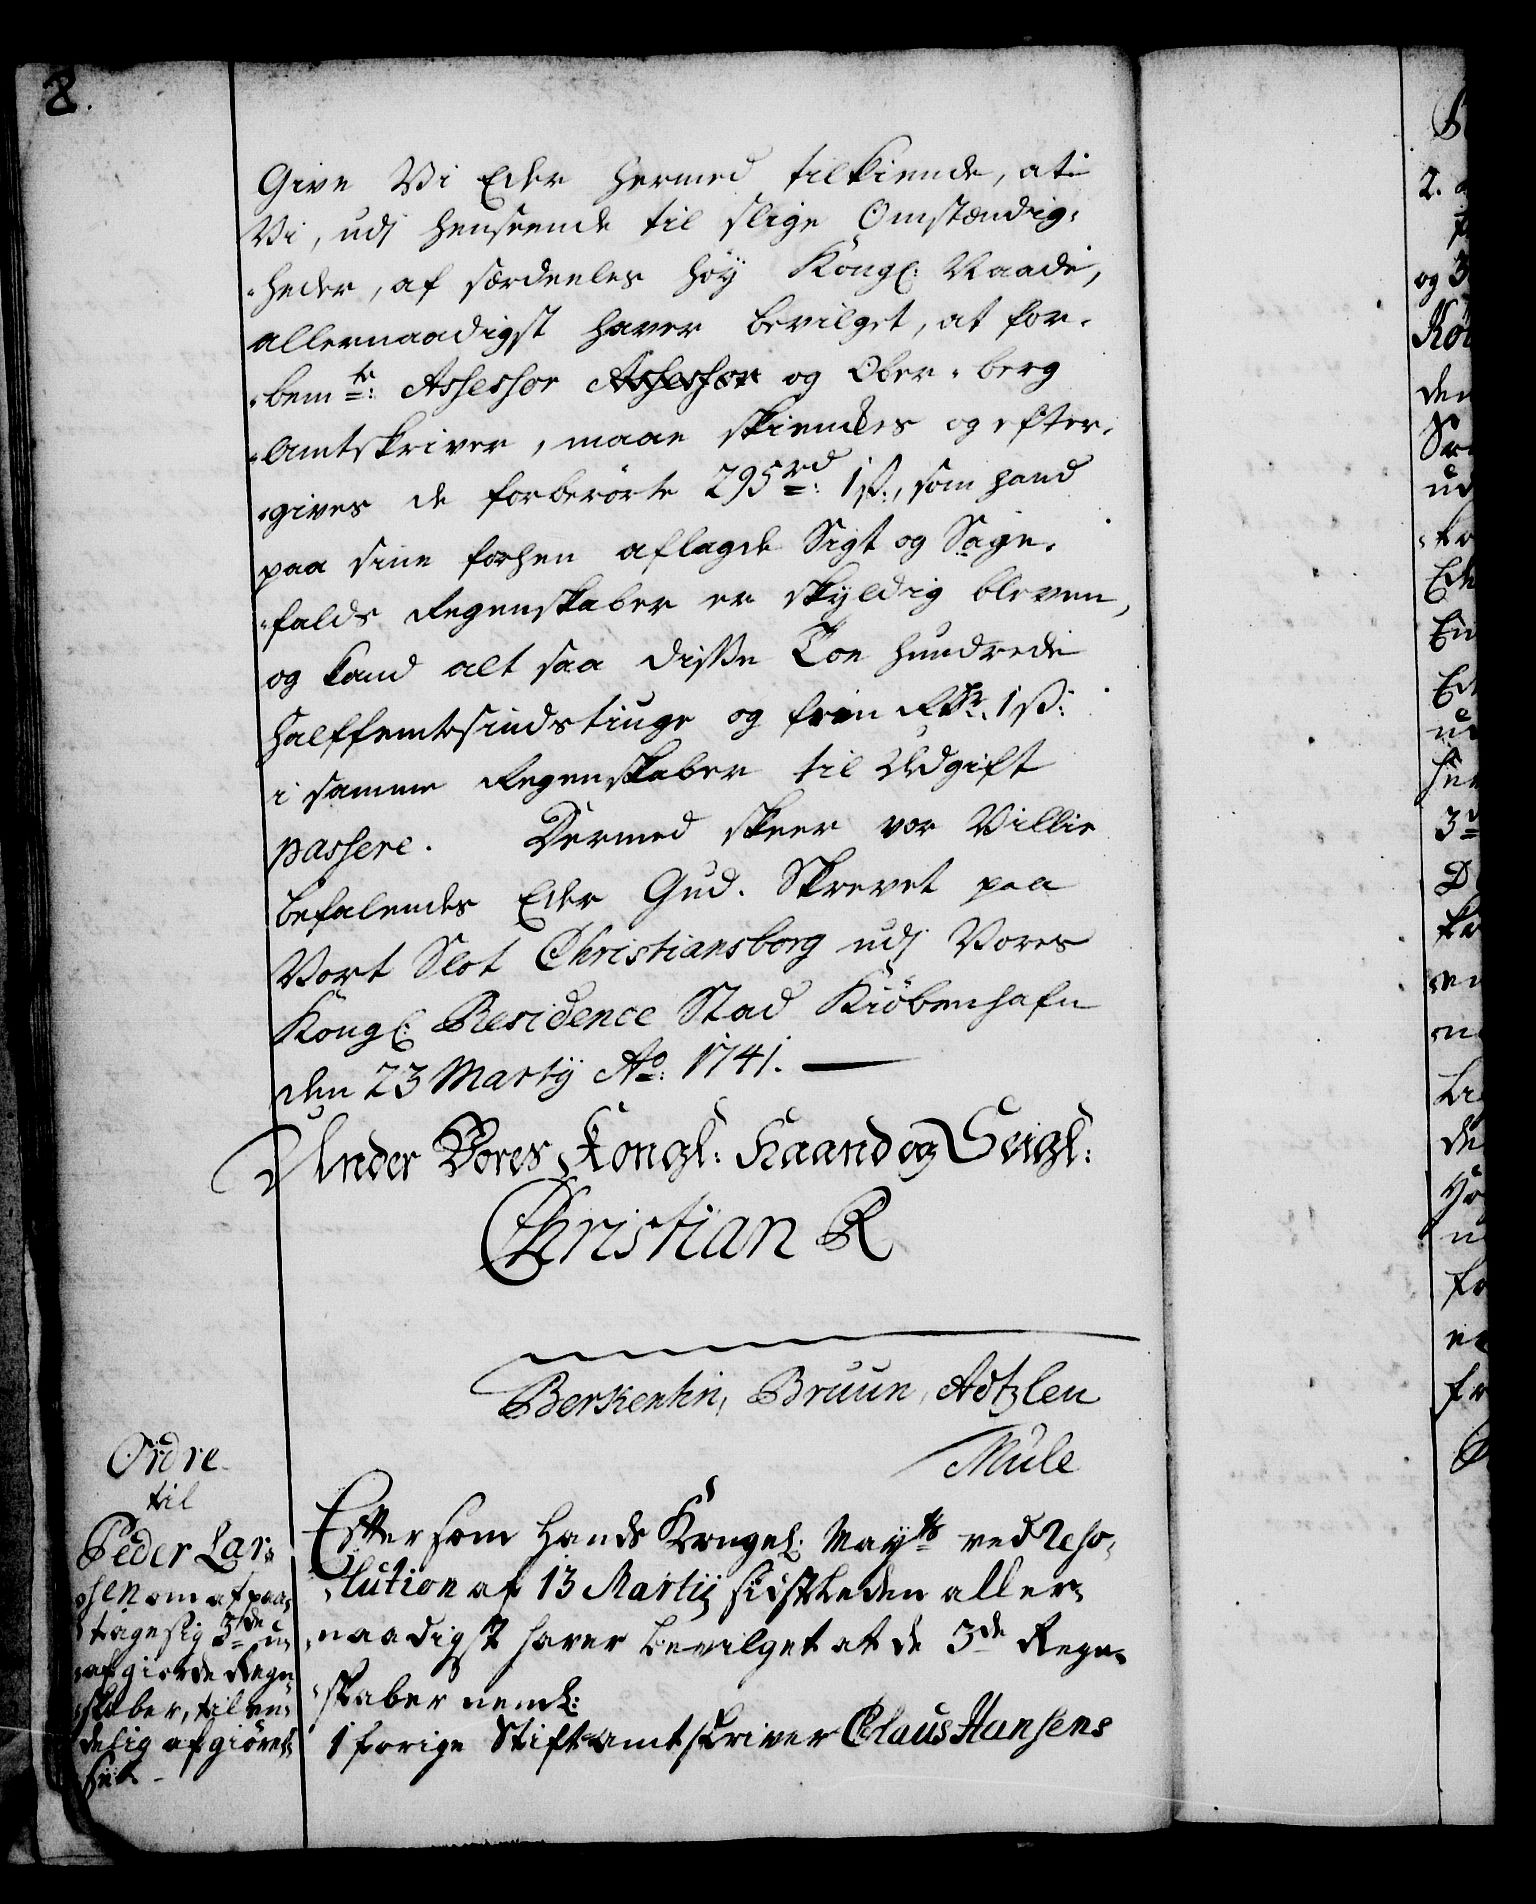 8.
Give Vi Eder hermed tilkiende, at
Vi, udj henseende til slige Omstændig-
-heder, af særdeeles høy Kongl: Naade,
allernaadigst haver bevilget, at for-
-bem.te: Assessor Assessor og Ober-berg
-Amtskriver, maae skienckes og efter-
-gives de forberørte 295 rd: 1 ß:, som hand
paa sine forhen aflagde Sigt og Sage-
-falds Regenskaber er skyldig bleven,
og kand alt saa disse Toe hundrede
halffemtesindstiuge og fem Rdr. 1 ß:
i samme Regenskaber til Udgift
passere. Dermed skeer vor Villie
befalendes Eder Gud. Skrevet paa
Vort Slot Christiansborg udj Vores
Kongl: Residence Stad Kiöbenhafn
den 23 Martij Ao: 1741.
Under Vores Kongl: Haand og Seigl:
Christian R
Berkentin, Bruun, Adtzlen
Mule
Ordre
til
Peder Lar-
sen om at paa-
tage sig 3de u-
afgiorde Regn-
skaber, til en-
delig afgiørel-
se
Efftersom Hands Kongel: Mayts ved Reso-
-lution af 13 Martij sidstleden aller-
-naadigst haver bevilget at de 3de Regn-
-skaber neml:
1 forige Stiftamtskriver Claus Hansens
2.
og 3